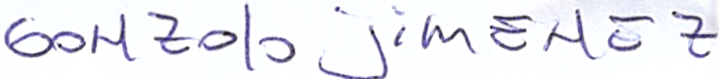 GONZolo jiMENEZ